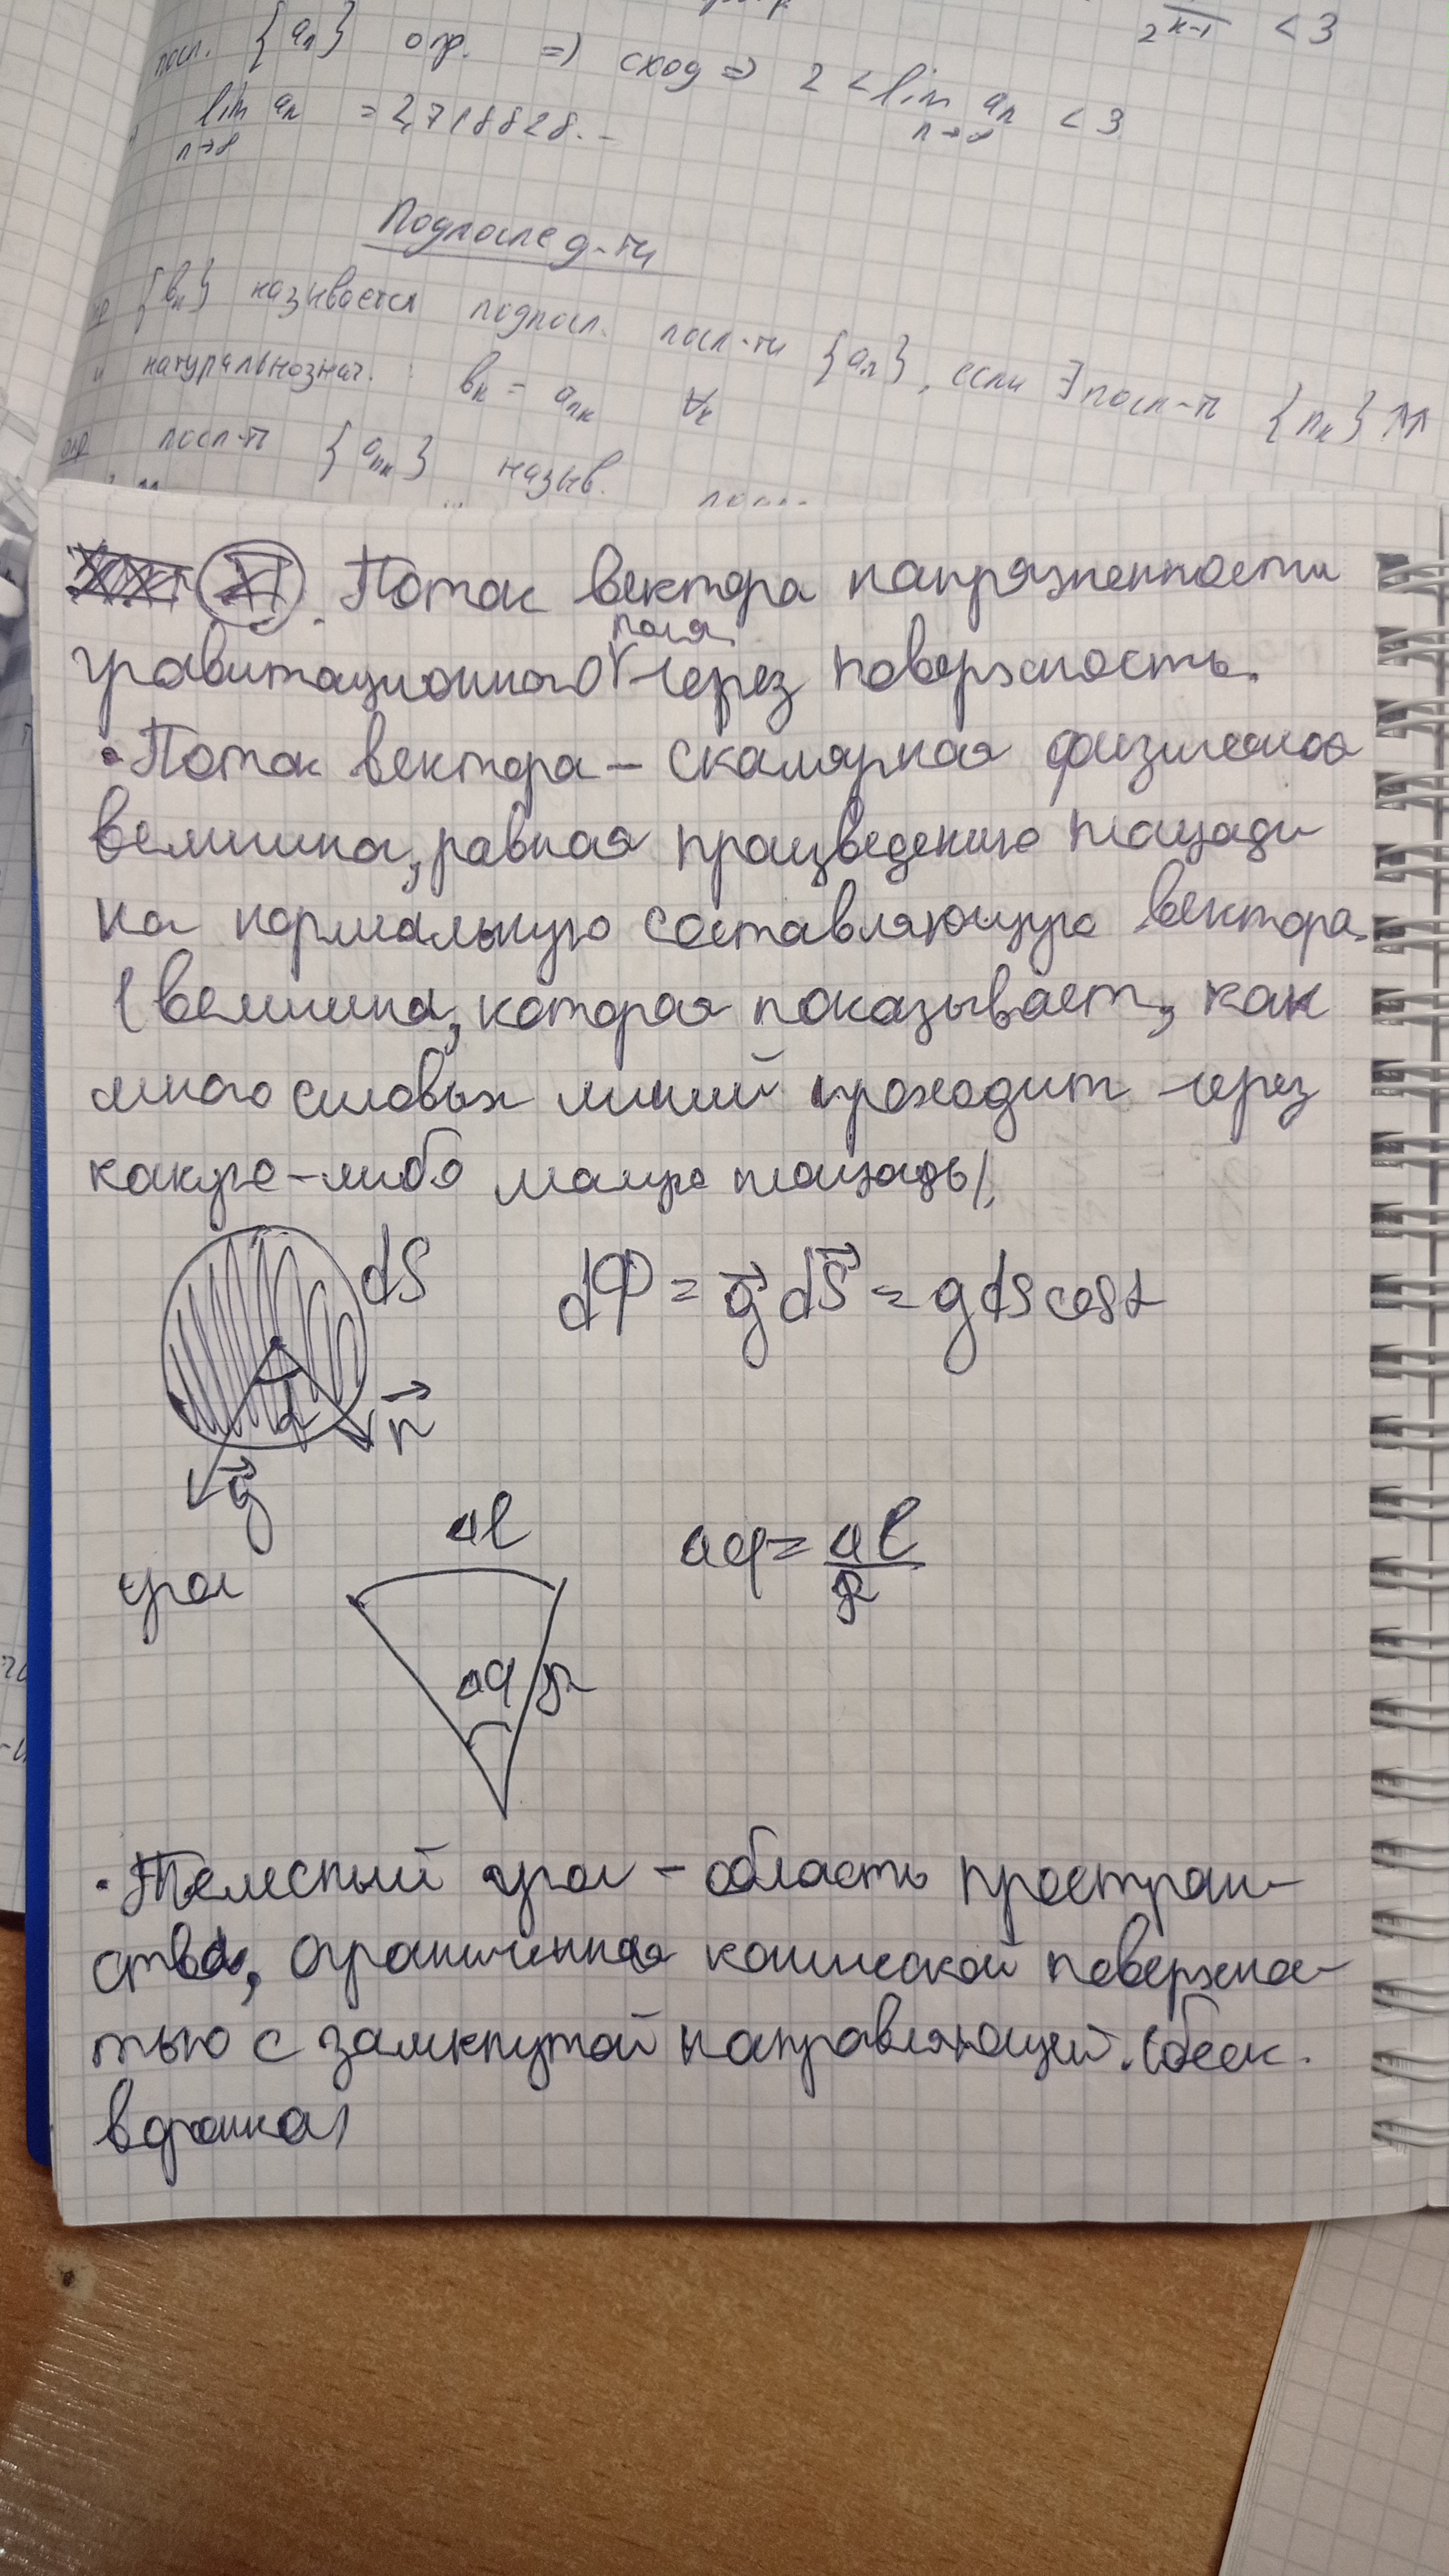 посл. {aₙ} огр. => сход => 2 < lim aₙ < 3
n→∞
2ᵏ⁻¹ < 3
lim aₙ = 2,718828...
n→∞
Подпослед-ти
{bₖ} называется подпосл. посл-ти {aₙ}, если ∃ посл-ть {nₖ} ↑↑
и натуральнознач. : bₖ = aₙₖ ∀k
опр посл-ть {aₙₖ} назыв.
XI. Поток вектора напряженности
поля
гравитационного через поверхность.
• Поток вектора – скалярная физическая
величина, равная произведению площади
на нормальную составляющую вектора.
(величина, которая показывает, как
много силовых линий проходит через
какую-либо малую площадь).
dS
dΦ = g⃗ dS⃗ = g dS cos α
α
n⃗
g⃗
Δl
угол
Δφ = Δl/R
Δφ R
• Телесный угол – область простран-
ства, ограниченная конической поверхнос-
тью с замкнутой направляющей. (беск.
воронка)